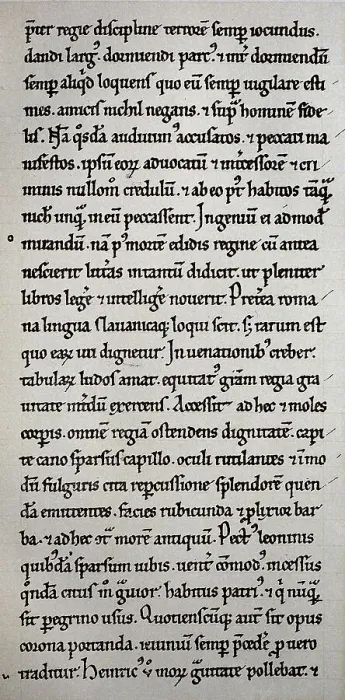 p̄ter regie discipline terrorē semꝑ iocundus.
dandi larg⁹. dormiendi parc⁹. ⁊ int̄ dormiendū
semꝑ aliqd̓ loquens quo eū semꝑ uigilare esti
mes. amicis nichil negans. ⁊ sup̄ hominē fide
lis. Nā qͦsdā audiuim⁹ accusatos. ⁊ peccati ma
nifestos. ipsū eoꝝ aduocatū ⁊ int̄cessorē ⁊ cri
minis nullom̊ credulū. ⁊ ab eo pt̓ habitos tāqͣ̄
nich̓ unqͣ̄ in eū peccassent. Ingeniū ei admod̄
mirandū. nā p⁹ mortē edidis regine cū antea
nescierit litt̄as intantū didicit. ut pleniter
libros leḡe ⁊ intelliḡe nouerit. Pret̄ea roma
na lingua slauanicaqꝫ loqui scit. sꝫ rarum est
quo eaꝝ uti dignetur. In uenationibꝰ creber.
tabulaꝝ ludos amat. equitat⁹ grām regia gra
uitate int̄dū exercens. Accessit ad hec ⁊ moles
corꝑis. omnē regiā ostendens dignitatē. capi
te cano sparsus capillo. oculi rutilantes ⁊ īmo
dū fulguris cita reꝑcussione splendorē quen
dā emittentes. facies rubicunda ⁊ ꝓlixior bar
ba. ⁊ ad hec ct̄ᵃ morē antiquū. Pect⁹ leoninis
quibꝰdā sparsum iubis. uent̄ cōmod⁹. incessus
qͦndā citus m̊ gͣuior. habitus patri⁹. ⁊ qͥ nūqͣ̄
sit ꝑegrino usus. Quotienscūqꝫ aut̄ sit opus
corona portanda. ieiuniū semꝑ p̄cedē ꝓ uero
traditur. Heinric⁹ ͦu moꝝ gͣuitate pollebat. ⁊